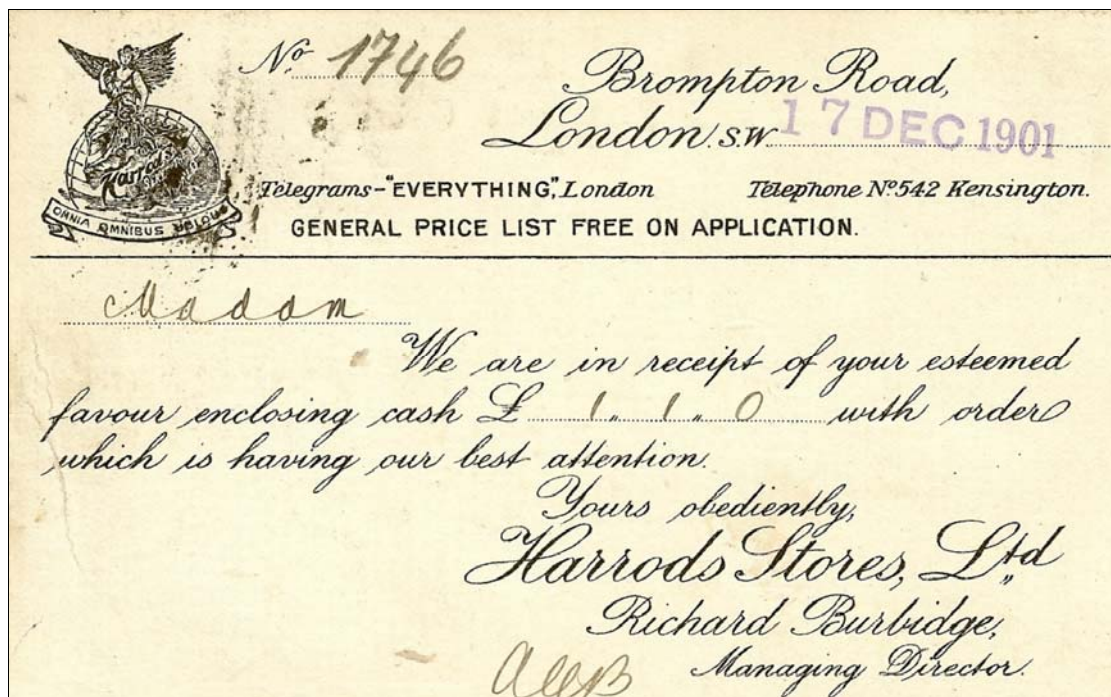 No 1746
Brompton Road,
London. S.W. 17 DEC 1901
Harrods
OMNIA OMNIBUS UBIQUE
Telegrams-"EVERYTHING", London Telephone No 542 Kensington.
GENERAL PRICE LIST FREE ON APPLICATION.
Madam
We are in receipt of your esteemed
favour enclosing cash £ 1. 1. 0 with order
which is having our best attention.
Yours obediently,
Harrods Stores, Ltd
Richard Burbidge,
Managing Director.